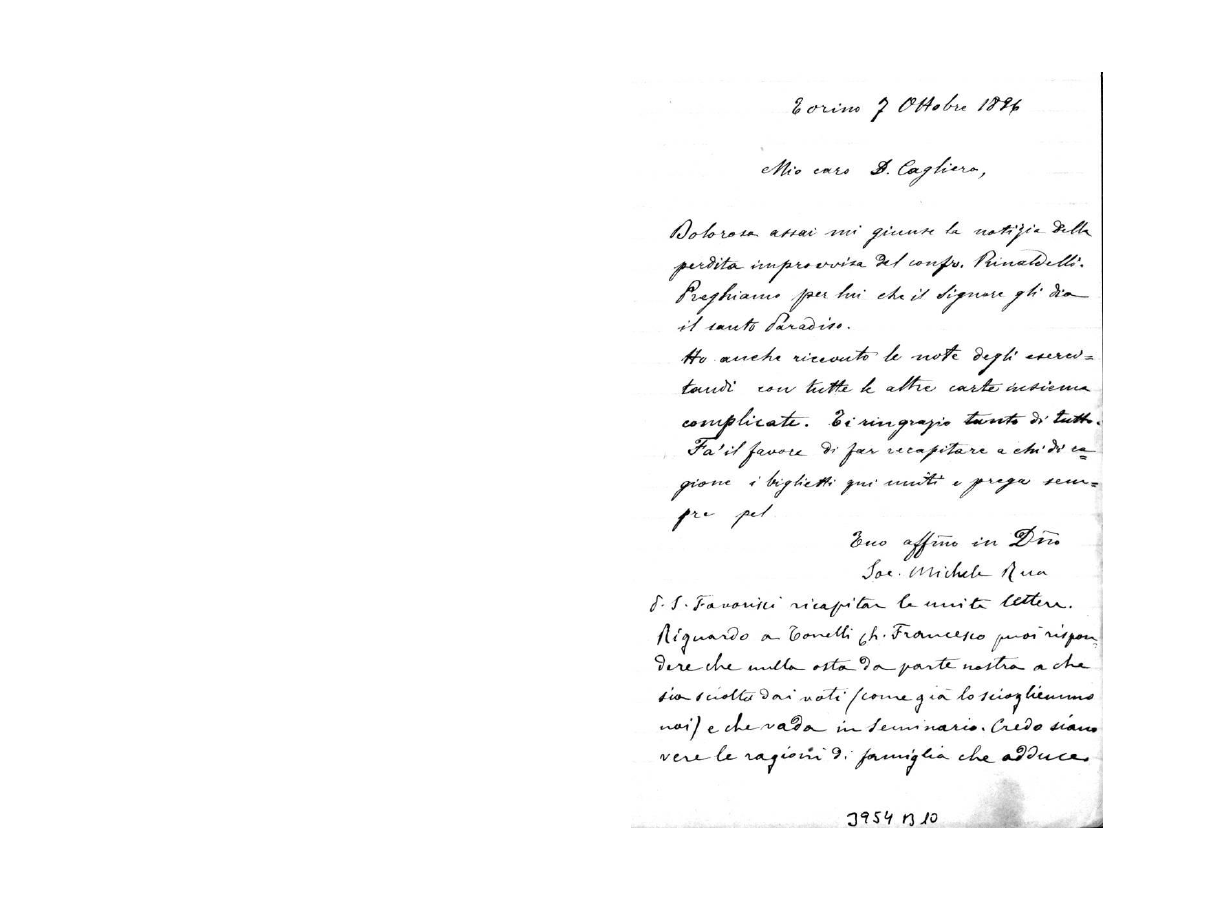 Torino 7 Ottobre 1896
Mio caro D. Cagliero,
Dolorosa assai mi giunse la notizia della
perdita improvvisa del confr. Rinaldelli.
Preghiamo per lui che il Signore gli dia
il santo Paradiso.
Ho anche ricevuto le note degli eserci=
tandi con tutte le altre carte insieme
complicate. Ti ringrazio tanto di tutto.
Fa' il favore di far recapitare a chi di ra=
gione i biglietti qui uniti e prega sem=
pre pel
Tuo affmo in Dno
Sac. Michele Rua
P. S. Favorisci ricapitar le unite lettere.
Riguardo a Tonelli Ch. Francesco puoi rispon=
dere che nulla osta da parte nostra a che
sia sciolto dai voti (come già lo sciogliemmo
noi) e che vada in Seminario. Credo siano
vere le ragioni di famiglia che adduce.
3954 B 10